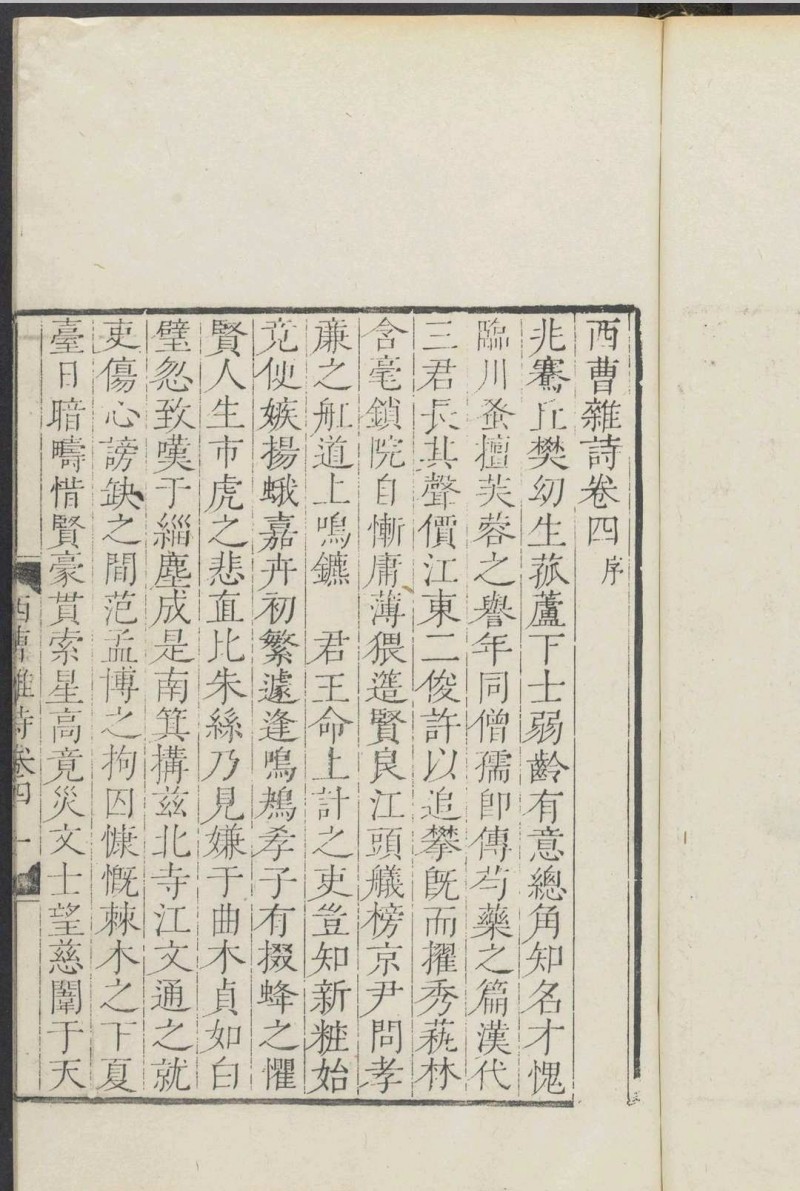 西曹雜詩卷四 序
兆騫丘樊幼生菰蘆下士弱齡有意總角知名才愧
臨川蚤擅芙蓉之譽年同僧孺卽傳芍藥之篇漢代
三君長其聲價江東二俊許以追攀旣而擢秀蓺林
含毫鎖院自慚庸薄猥簉賢良江頭艤榜京尹問孝
亷之舡道上鳴鑣 君王命上計之吏豈知新粧始
竟便嫉揚蛾嘉卉初繁遽逢鳴鴂孝子有掇蜂之懼
賢人生市虎之悲直比朱絲乃見嫌于曲木貞如白
璧忽致嘆于緇塵成是南箕搆兹北寺江文通之就
吏傷心謗缺之間范孟博之拘囚慷慨棘木之下夏
臺日暗疇惜賢豪貫索星高竟災文士望慈闈于天
西曹雜詩卷四 一